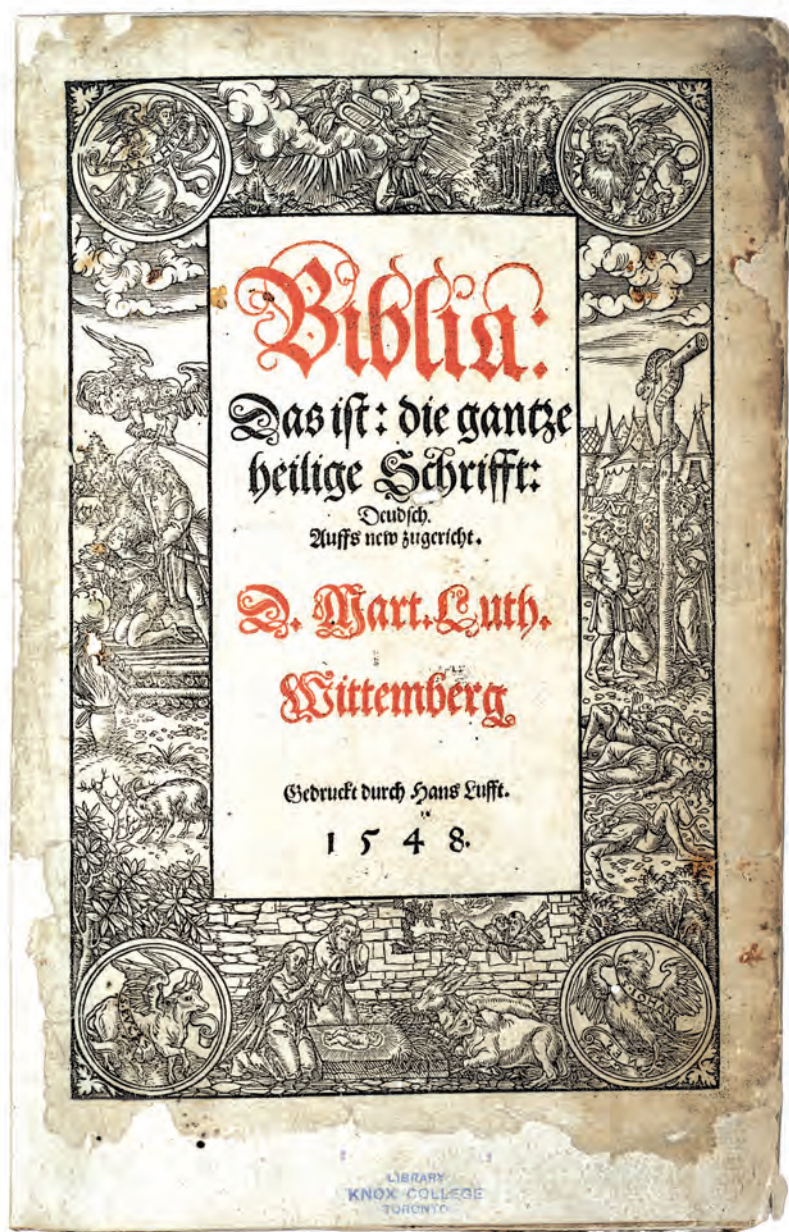 Biblia:
Das ist: die gantze
heilige Schrifft:
Deudsch.
Auffs new zugericht.
D. Mart. Luth.
Wittemberg
Gedruckt durch Hans Lufft.
1548.
JOHAN
LIBRARY
KNOX COLLEGE
TORONTO